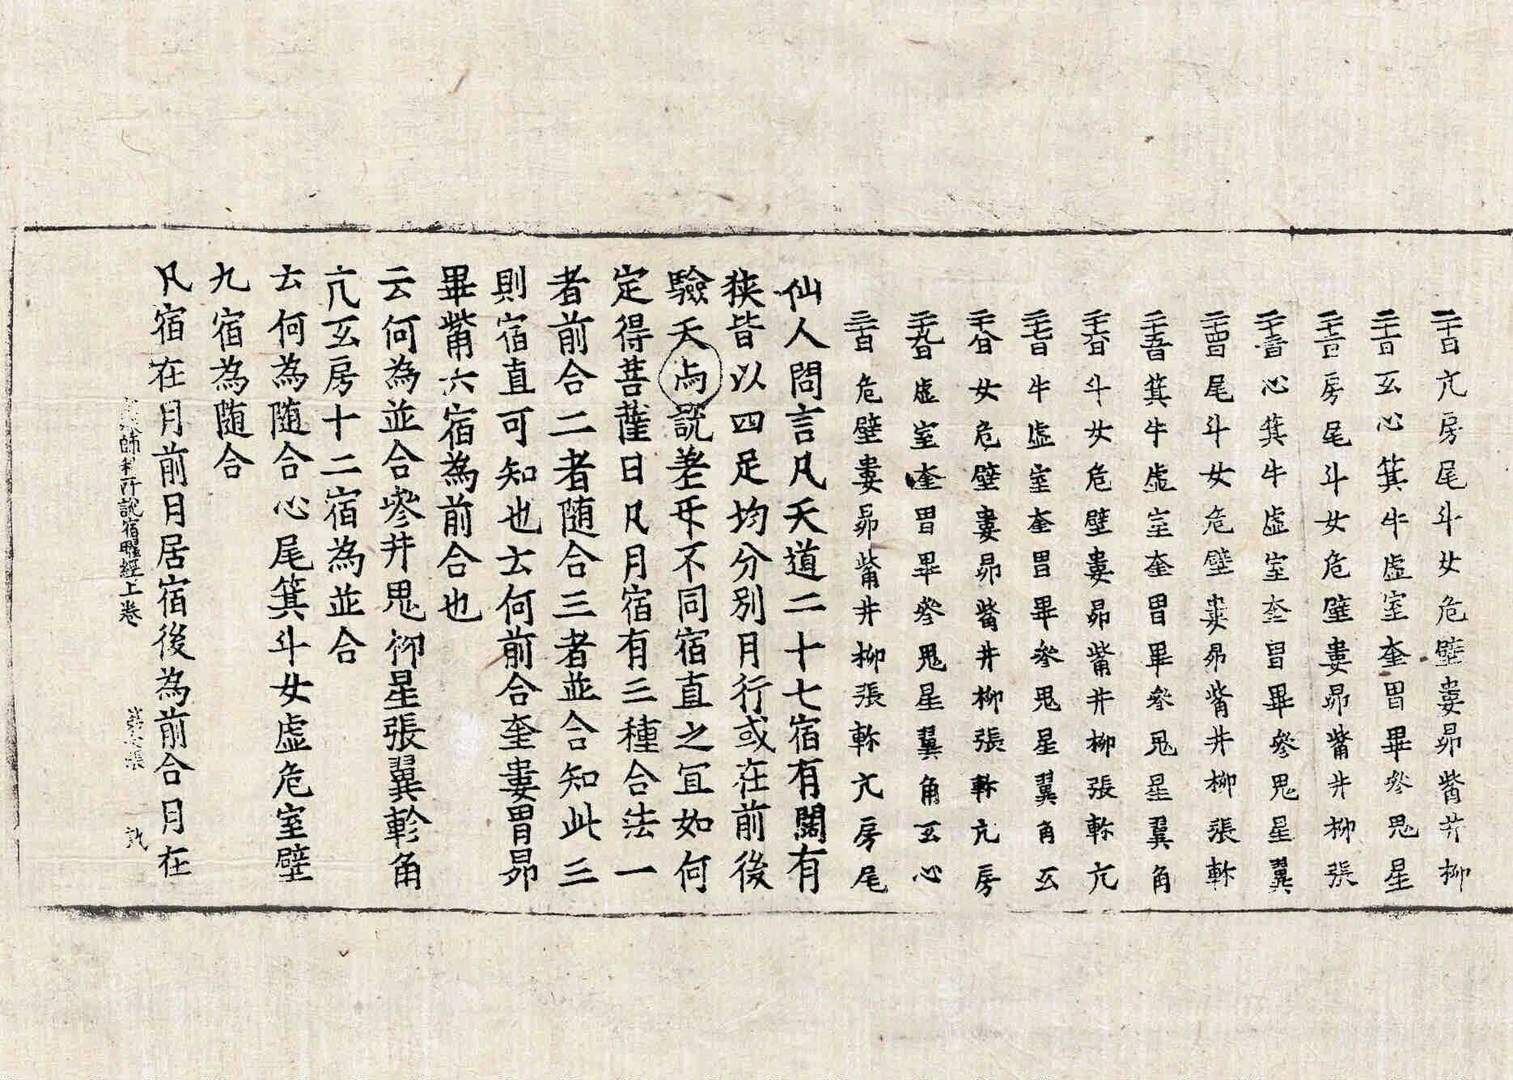 二十日亢房尾斗女危壁婁昴觜井柳
二十一日氐心箕牛虛室奎胃畢參鬼星
二十二日房尾斗女危壁婁昴觜井柳張
二十三日心箕牛虛室奎胃畢參鬼星翼
二十四日尾斗女危壁婁昴觜井柳張軫
二十五日箕牛虛室奎胃畢參鬼星翼角
二十六日斗女危壁婁昴觜井柳張軫亢
二十七日牛虛室奎胃畢參鬼星翼角氐
二十八日女危壁婁昴觜井柳張軫亢房
二十九日虛室奎胃畢參鬼星翼角氐心
三十日危壁婁昴觜井柳張軫亢房尾
仙人問言凡天道二十七宿有闊有
狹皆以四足均分別月行或在前後
驗天尚說差互不同宿直之宜如何
定得菩薩曰凡月宿有三種合法一
者前合二者隨合三者並合知此三
則宿直可知也云何前合奎婁胃昴
畢觜六宿為前合也
云何為並合參井鬼柳星張翼軫角
亢氐房十二宿為並合
云何為隨合心尾箕斗女虛危室壁
九宿為隨合
凡宿在月前月居宿後為前合月在
師利所說宿曜經上卷